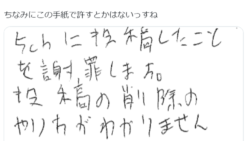 ちなみにこの手紙で許すとかはないっすね
5chに投稿したこと
を謝罪します。
投稿の削除の
やりかがわかりません